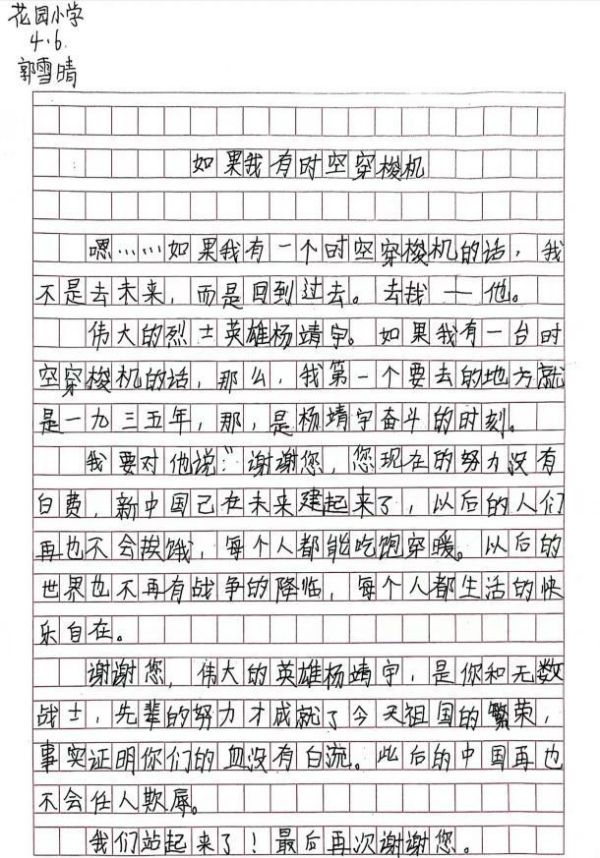 花园小学
4.6.
郭雪晴
如果我有时空穿梭机
嗯……如果我有一个时空穿梭机的话，我
不是去未来，而是回到过去。去找——他。
伟大的烈士英雄杨靖宇。如果我有一台时
空穿梭机的话，那么，我第一个要去的地方就
是一九三五年，那，是杨靖宇奋斗的时刻。
我要对他说：“谢谢您，您现在的努力没有
白费，新中国已在未来建起来了，以后的人们
再也不会挨饿，每个人都能吃饱穿暖。以后的
世界也不再有战争的降临，每个人都生活的快
乐自在。
谢谢您，伟大的英雄杨靖宇，是你和无数
战士，先辈的努力才成就了今天祖国的繁荣，
事实证明你们的血没有白流。此后的中国再也
不会任人欺辱。
我们站起来了！最后再次谢谢您。